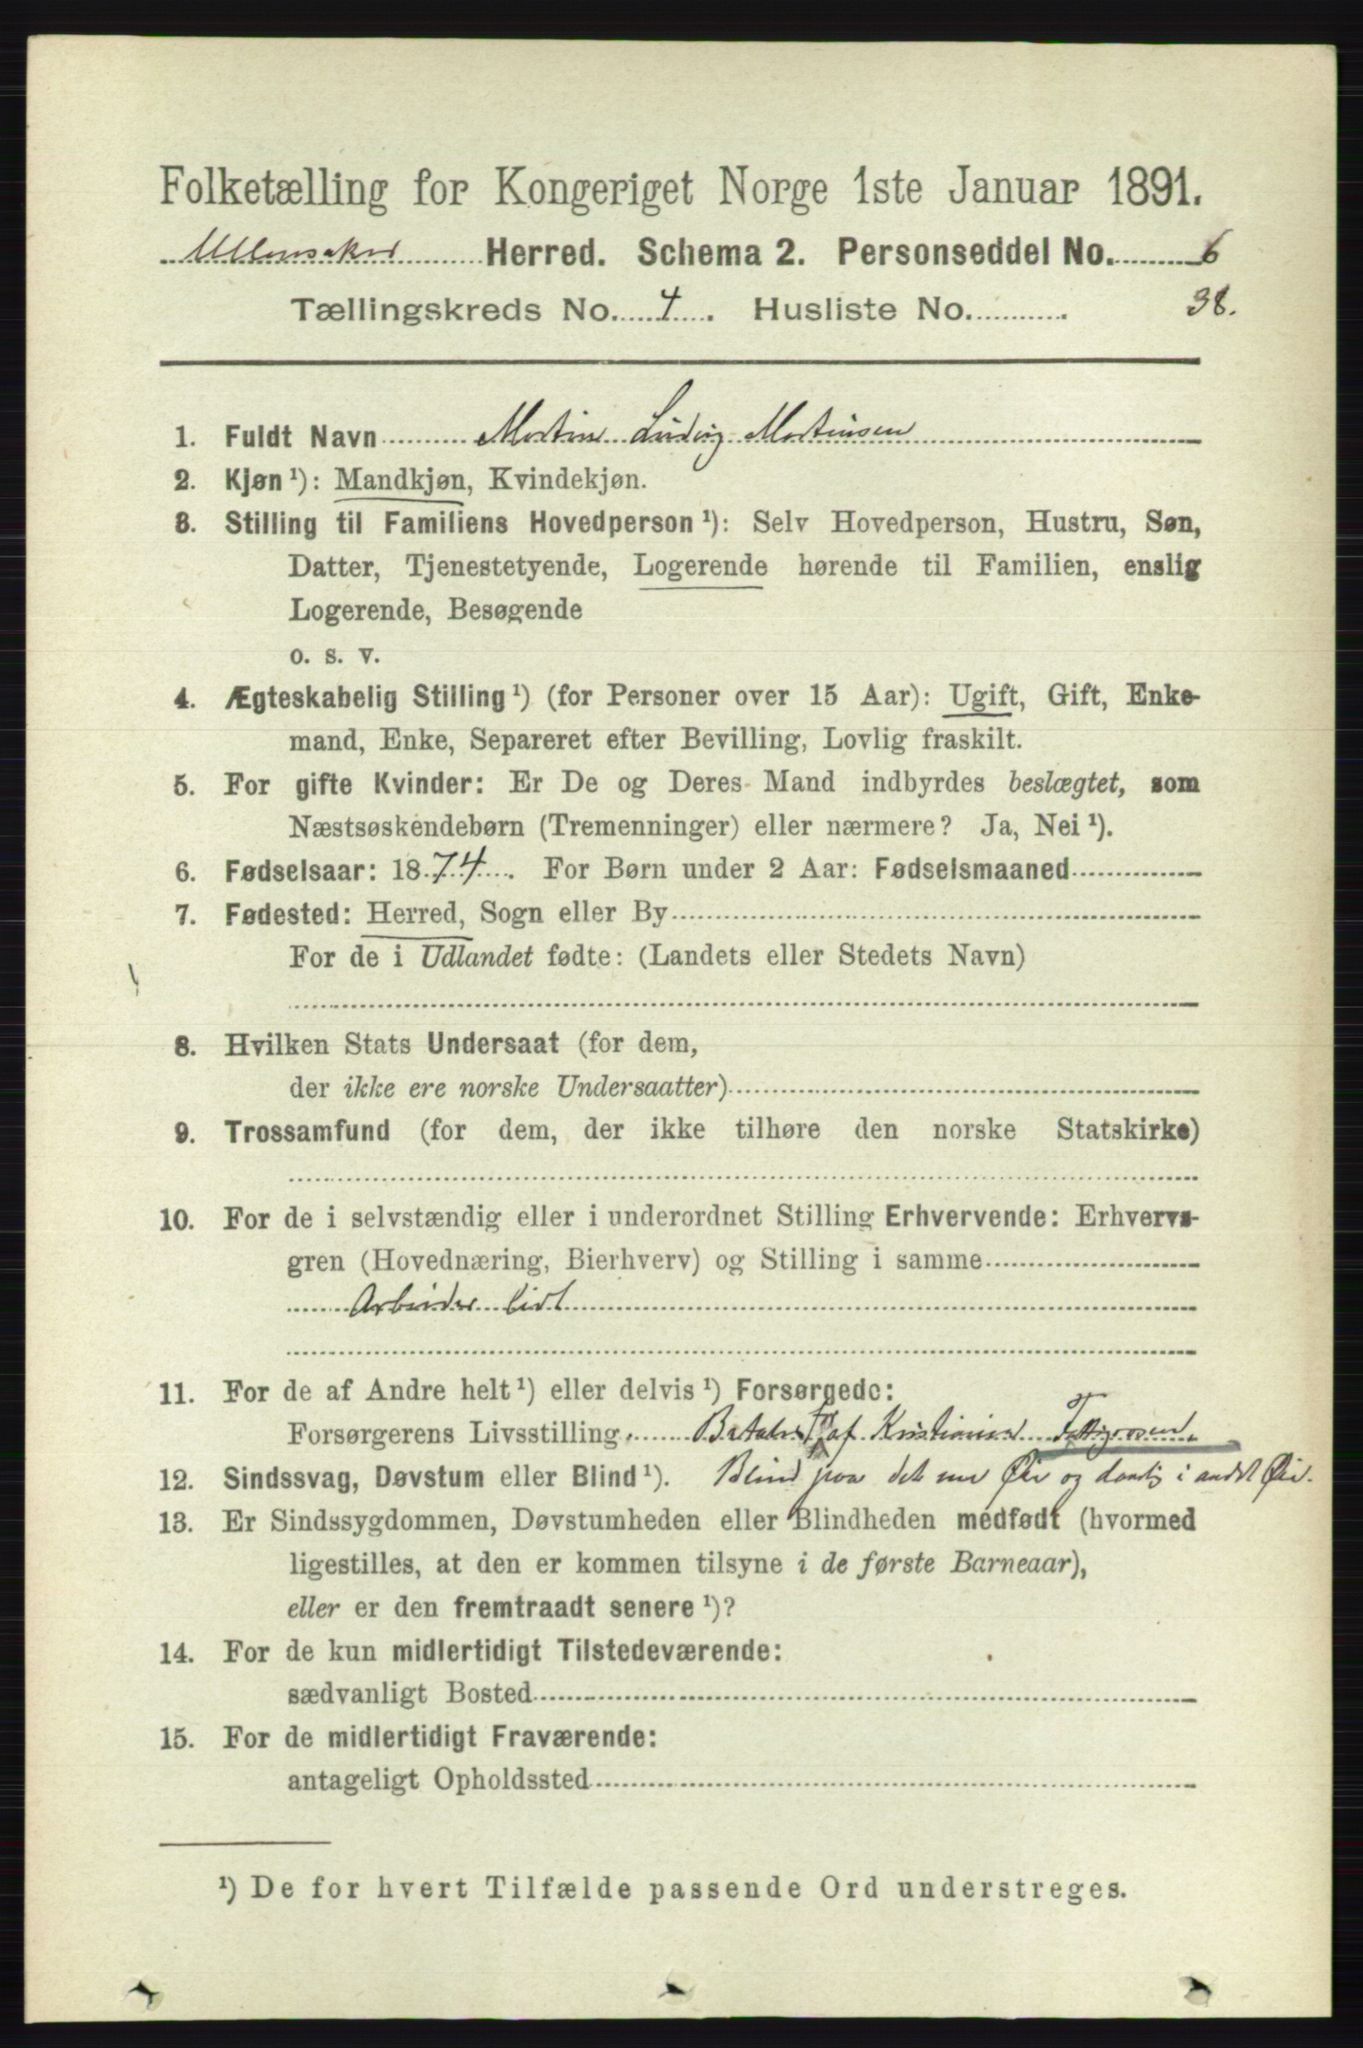 Folketælling for Kongeriget Norge 1ste Januar 1891.
Ullensaker Herred. Schema 2. Personseddel No. 6
Tællingskreds No. 4. Husliste No. 38.
1. Fuldt Navn Martin Ludvig Martinsen
2. Kjøn ¹): Mandkjøn, Kvindekjøn.
3. Stilling til Familiens Hovedperson ¹): Selv Hovedperson, Hustru, Søn,
Datter, Tjenestetyende, Logerende hørende til Familien, enslig
Logerende, Besøgende
o. s. v.
4. Ægteskabelig Stilling ¹) (for Personer over 15 Aar): Ugift, Gift, Enke-
mand, Enke, Separeret efter Bevilling, Lovlig fraskilt.
5. For gifte Kvinder: Er De og Deres Mand indbyrdes beslægtet, som
Næstsøskendebørn (Tremenninger) eller nærmere? Ja, Nei ¹).
6. Fødselsaar: 1874. For Børn under 2 Aar: Fødselsmaaned
7. Fødested: Herred, Sogn eller By
For de i Udlandet fødte: (Landets eller Stedets Navn)
8. Hvilken Stats Undersaat (for dem,
der ikke ere norske Undersaatter)
9. Trossamfund (for dem, der ikke tilhøre den norske Statskirke)
10. For de i selvstændig eller i underordnet Stilling Erhvervende: Erhvervs-
gren (Hovednæring, Bierhverv) og Stilling i samme
Arbeider lidt
11. For de af Andre helt ¹) eller delvis ¹) Forsørgede:
Forsørgerens Livsstilling. Betales af Kristiania Fattigvæsen.
12. Sindssvag, Døvstum eller Blind ¹). Blind paa det ene Øie og daarlig i andet Øie.
13. Er Sindssygdommen, Døvstumheden eller Blindheden medfødt (hvormed
ligestilles, at den er kommen tilsyne i de første Barneaar),
eller er den fremtraadt senere ¹)?
14. For de kun midlertidigt Tilstedeværende:
sædvanligt Bosted
15. For de midlertidigt Fraværende:
antageligt Opholdssted
¹) De for hvert Tilfælde passende Ord understreges.